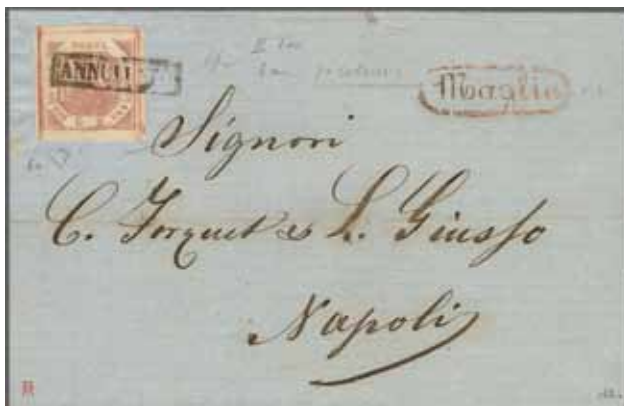 ANNULLATO
Maglie
Signori
C. Forquet & L. Giusso
Napoli